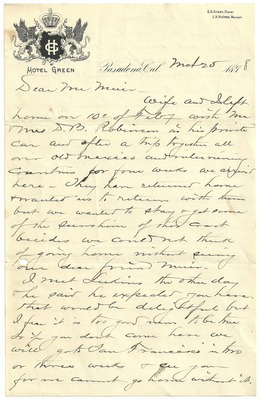 G.G. Green, Owner
J.H. Holmes, Manager
Hotel Green
Pasadena, Cal. Mch 25 1898
Dear Mr Muir.
Wife and I left
home on 10th of Feby with Mr
Mrs D.B. Robinson in his private
car and after a trip together all
over old Mexico and returning
for four weeks we arrived
here - They have returned home
& wanted us to return with them
but we wanted to stay & get some
of the sunshine of this Coast
besides we could not think
of going home without seeing
our dear friend Muir.
I met the other day
he said he expected you here,
that would be delightful but
I fear it is too good news to be true
So if you don't come here we
will go to San Francisco in two
or three weeks & see you
for we cannot go home without it.